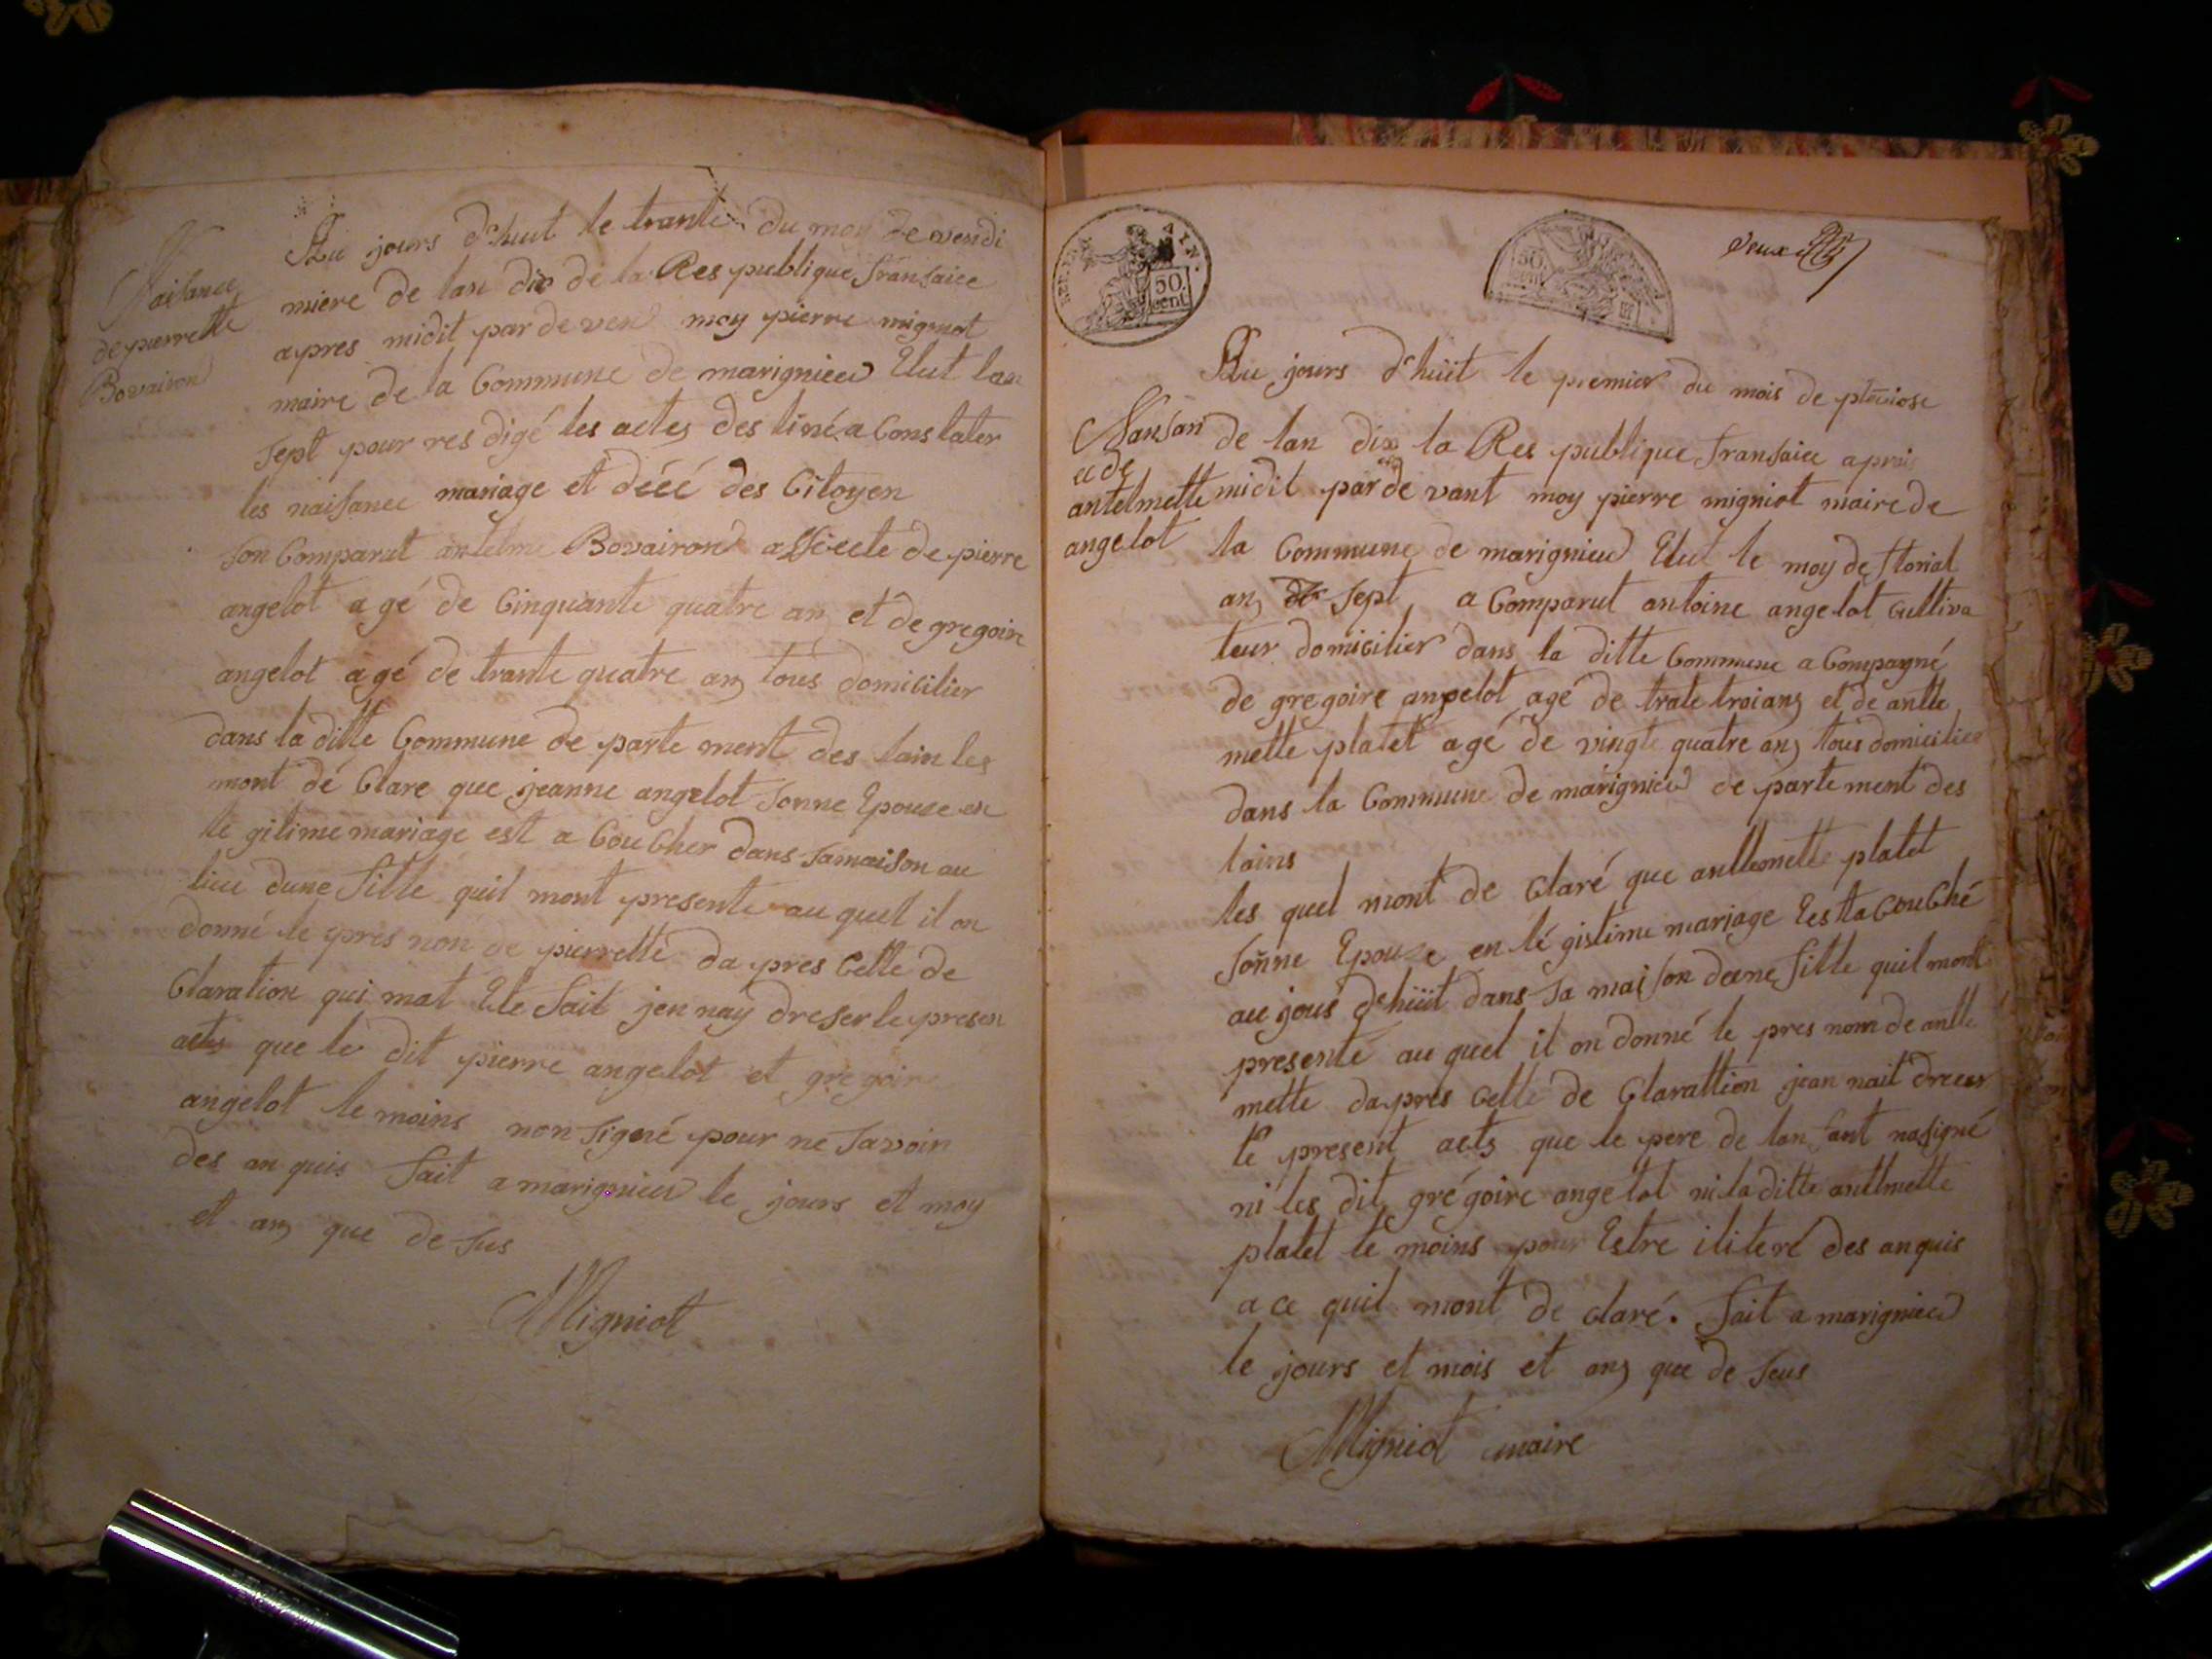 Naisance
de pierrette
Bovairon
Au jours d'huit le trante du moy de vendi
miere de lan dix de la Res publique fransaice
apres midit par de ven moy pierre migniot
maire de la Commune de marignieu Elut lan
sept pour res digé les actes des tiné a Constater
les naisance mariage et déèé des Citoyen
son Comparut antelme Bovairon de pierre
angelot agé de Cinquante quatre an et de gregoire
angelot agé de trante quatre an tous domicilier
dans la ditte Commune de parte ment des lain les
mont dé Clare que jeanne angelot sonne Epouse en
le gitime mariage est a CouCher dans sa maison au
lieu dune fille quil mont presente au quel il on
donné le pres non de pierrette da pres Cette de
Claration qui mat Ete fait jen nay dreser le presen
acts que le dit pierre angelot et gregoire
angelot te moins non signé pour ne savoir
des an quis fait a marignieu le jours et moy
et an que de sus
Migniot
AIN.
50.
cent
50.
cent
deux
Au jours d'hüit le premier du mois de plœviose
Nansan
ce de
antelmette
angelot
de lan dix la Res publique fransaice aprai
midit par de vant moy pierre migniot maire de
la Commune de marignieu Elut le moy de florial
an sept a Comparut antoine angelot Cultiva
teur domicilier dans la ditte Commune a Compagné
de gregoire angelot agé de trate troi an et de antle
mette platet agé de vingt quatre an tous domicilier
dans la Commune de marignieu de parte ment des
lains
les quel mont de Claré que antlemette platet
sonne Epouse en lé gistime mariage Est a CouChé
au jous d'hüit dans sa maison dune fille quil mont
presenté au quel il on donné le pres nom de antle
mette da pres Cette de Clarattion jean nait dreser
le present acts que le pere de lan fant na signé
ni les dit grégoire angelot ni la ditte antlmette
platet te moins pour Estre iliteré des an quis
a ce quil mont de claré. fait a marignieu
le jours et mois et an que de seus
Migniot maire